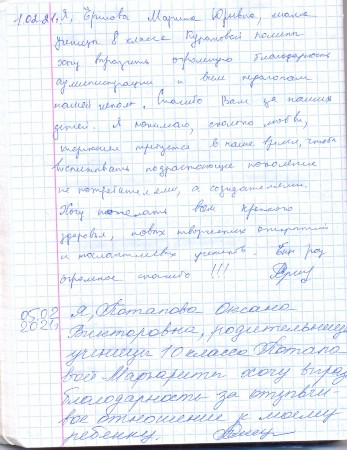 1.02.21. Я, Марина Юрьевна, мама
ученицы 8 класса
хочу выразить огромную благодарность
администрации и всем педагогам
нашей школы. Спасибо Вам за наших
детей. Я понимаю, сколько любви,
терпения требуется в наше время, чтобы
воспитывать подрастающее поколение
не потребителями, а созидателями.
Хочу пожелать вам крепкого
здоровья, новых творческих открытий
и талантливых учеников. Ещё раз
огромное спасибо !!!
05.02 Я, Потапова Оксана
2021г. Викторовна, родительница
ученицы 10 класса Потапо
вой Маргариты хочу выраз
благодарность за отзывчи-
вое отношение к моему
ребенку.